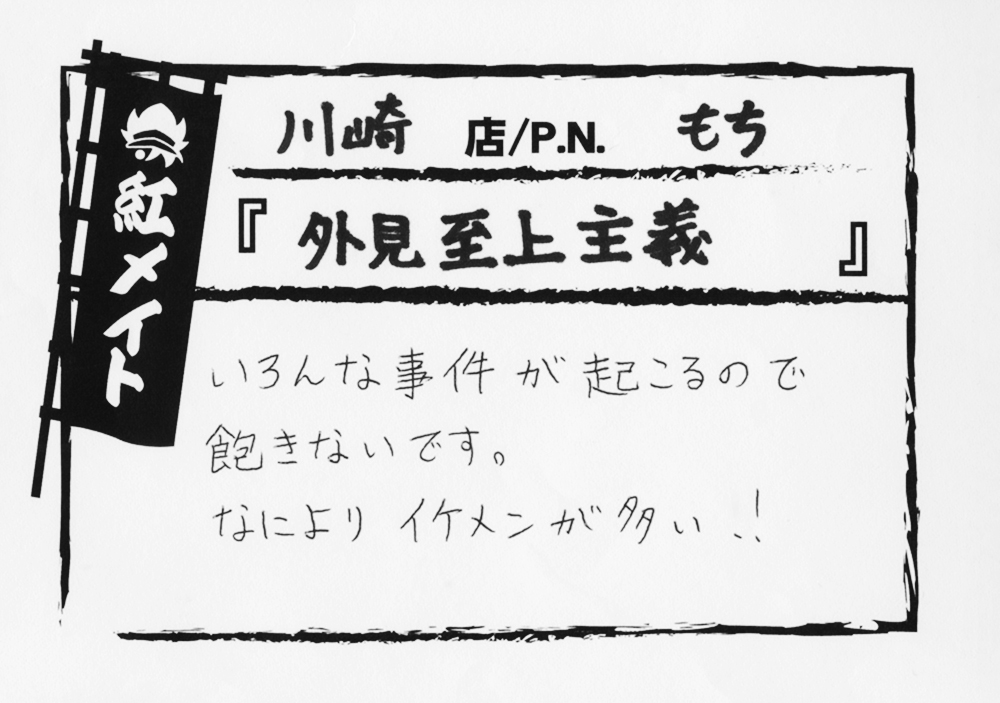 紅メイト
川崎 店/P.N. もち
『外見至上主義』
いろんな事件が起こるので
飽きないです。
なにより イケメンが多い!!